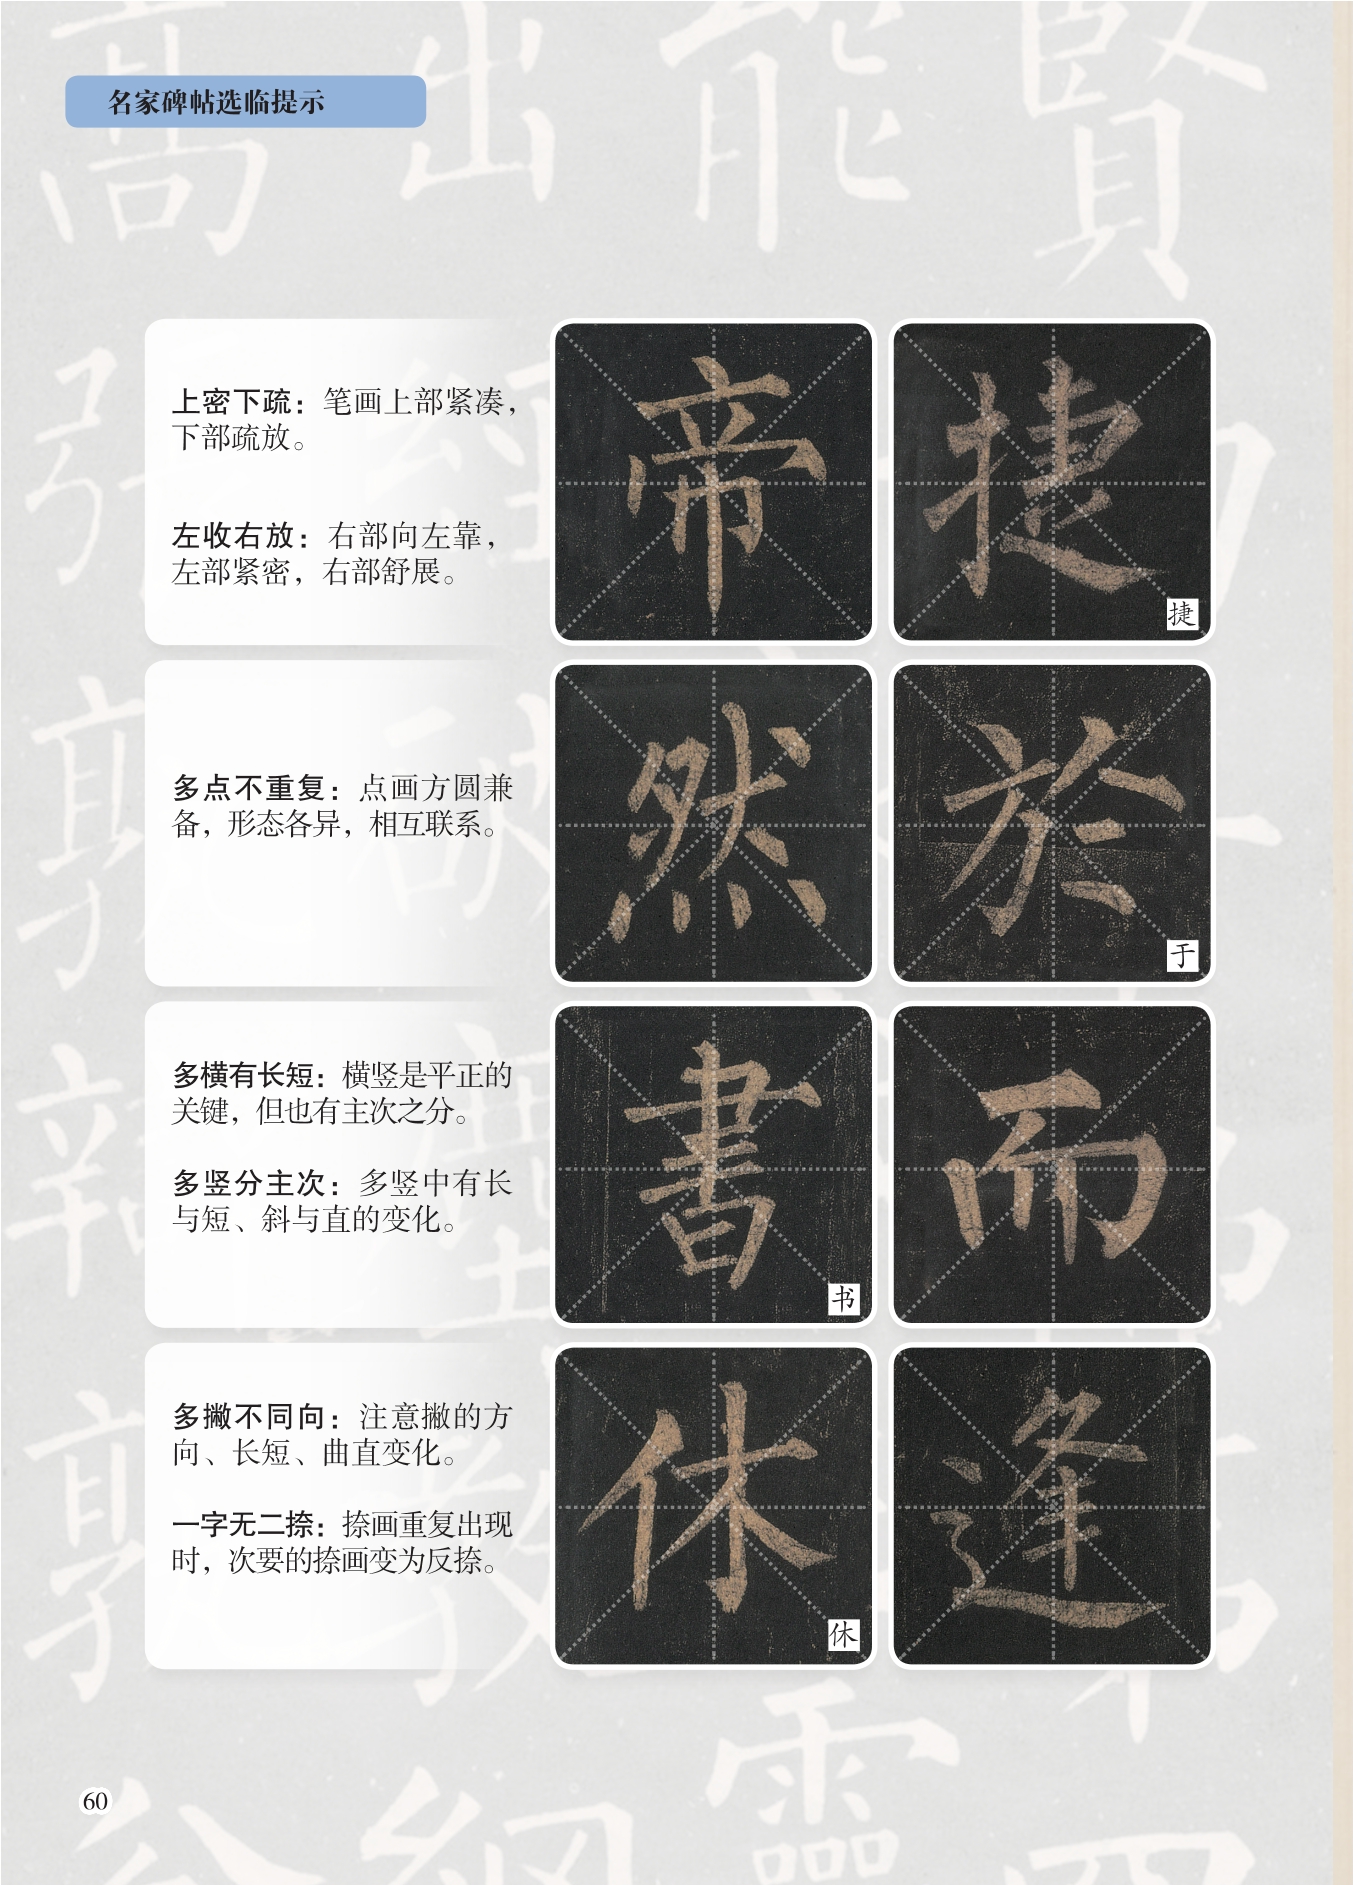 名家碑帖选临提示
上密下疏：笔画上部紧凑，
下部疏放。
左收右放：右部向左靠，
左部紧密，右部舒展。
帝
捷
捷
多点不重复：点画方圆兼
备，形态各异，相互联系。
然
於
于
多横有长短：横竖是平正的
关键，但也有主次之分。
多竖分主次：多竖中有长
与短、斜与直的变化。
書
书
而
多撇不同向：注意撇的方
向、长短、曲直变化。
一字无二捺：捺画重复出现
时，次要的捺画变为反捺。
休
休
逢
60